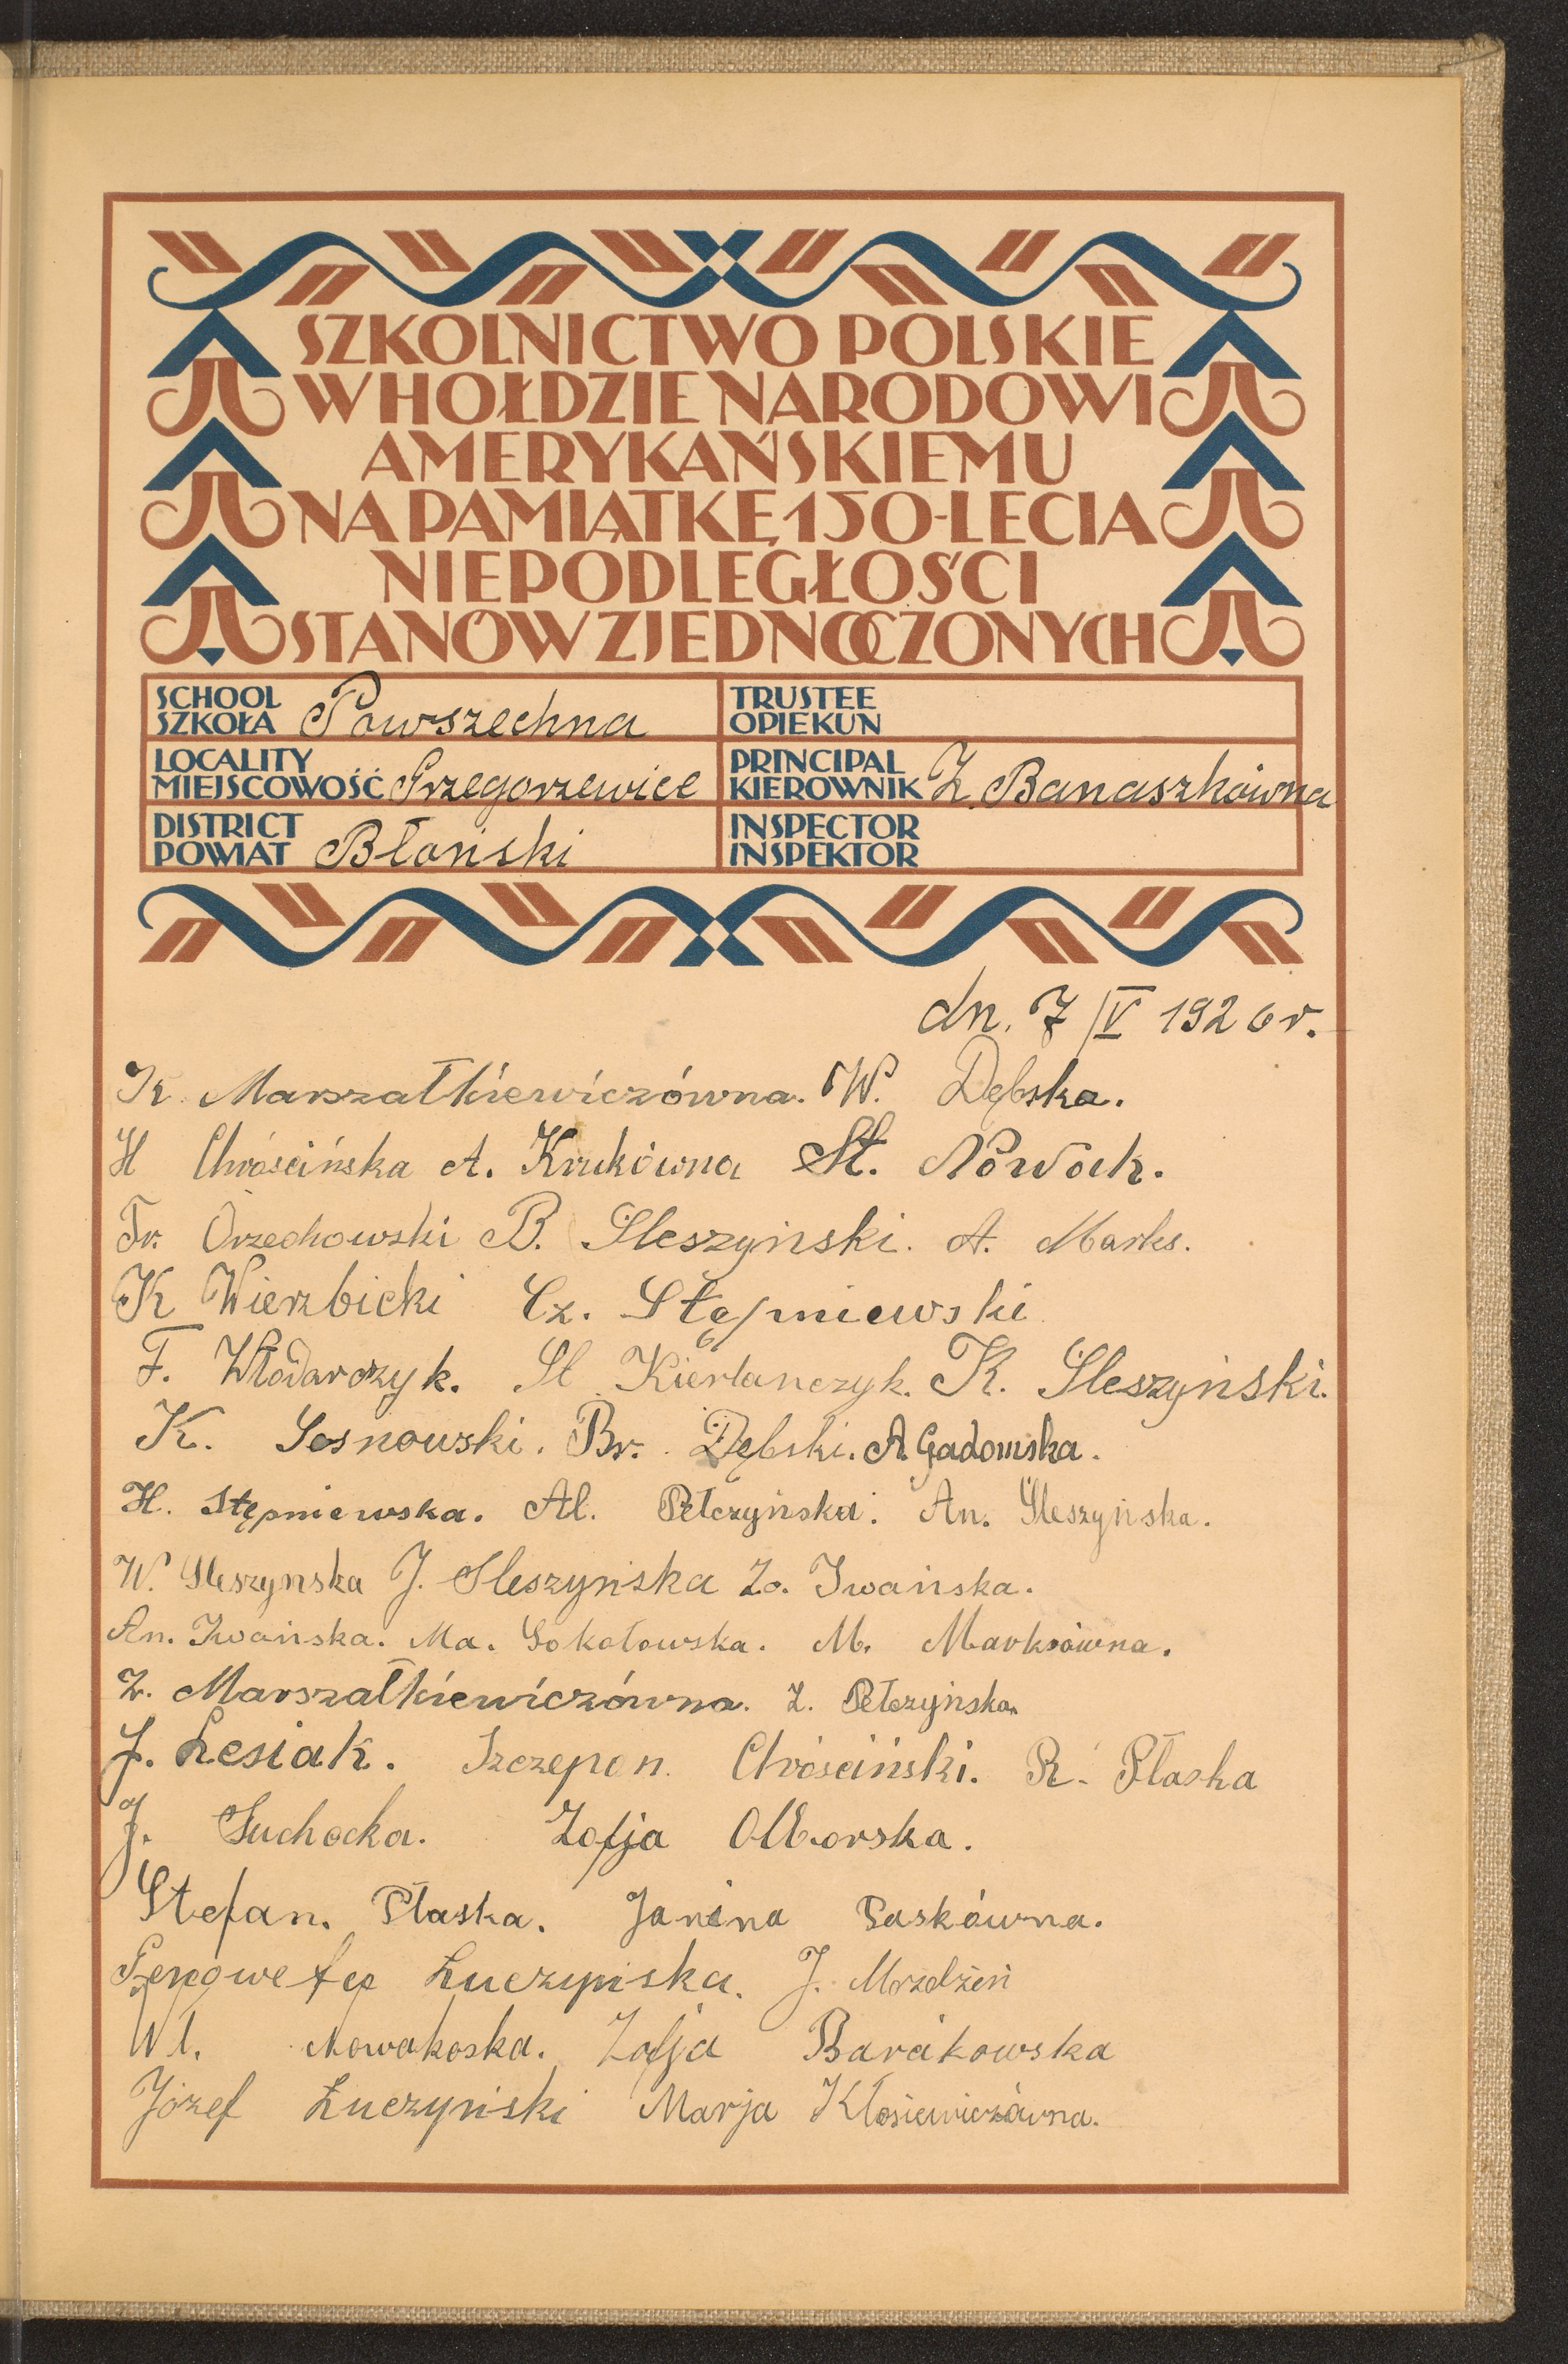 SZKOLNICTWO POLSKIE
W HOŁDZIE NARODOWI
AMERYKAŃSKIEMU
NA PAMIĄTKĘ 150-LECIA
NIEPODLEGŁOŚCI
STANÓW ZJEDNOCZONYCH
SCHOOL
SZKOŁA Powszechna
TRUSTEE
OPIEKUN
LOCALITY
MIEJSCOWOŚĆ Grzegorzewice
PRINCIPAL
KIEROWNIK Z. Banaszkówna
DISTRICT
POWIAT Błoński
INSPECTOR
INSPEKTOR
dn. 7/V 1926 r.
K. Marszałkiewiczówna. W. Dębska.
H Chróścińska A. Krukówna St. Nowak.
Fr. Orzechowski B. Sleszyński. A. Marks.
K Wierzbicki Cz. Stępniewski
F. Włodarczyk. St Kierlanczyk. K. Sleszyński.
K. Sosnowski. Br. Dębski. A. Gadomska.
H. Stępniewska. Al. Pełczyńska. An. Śleszyńska.
W. Sleszynska J. Sleszyńska Zo. Iwańska.
An. Iwańska. Ma. Sokołowska. M. Marksówna.
Z. Marszałkiewiczówna. Z. Pełczyńska
J. Lesiak. Szczepan Chróściński. R. Płaska
J. Suchocka. Zofja Olborska.
Stefan. Płaska. Janina Paskówna.
Łuczyńska. J. Mozdżeń
Wł. Nowakoska. Zofja Barakowska
Józef Łuczyński Marja Kłosiewiczówna.